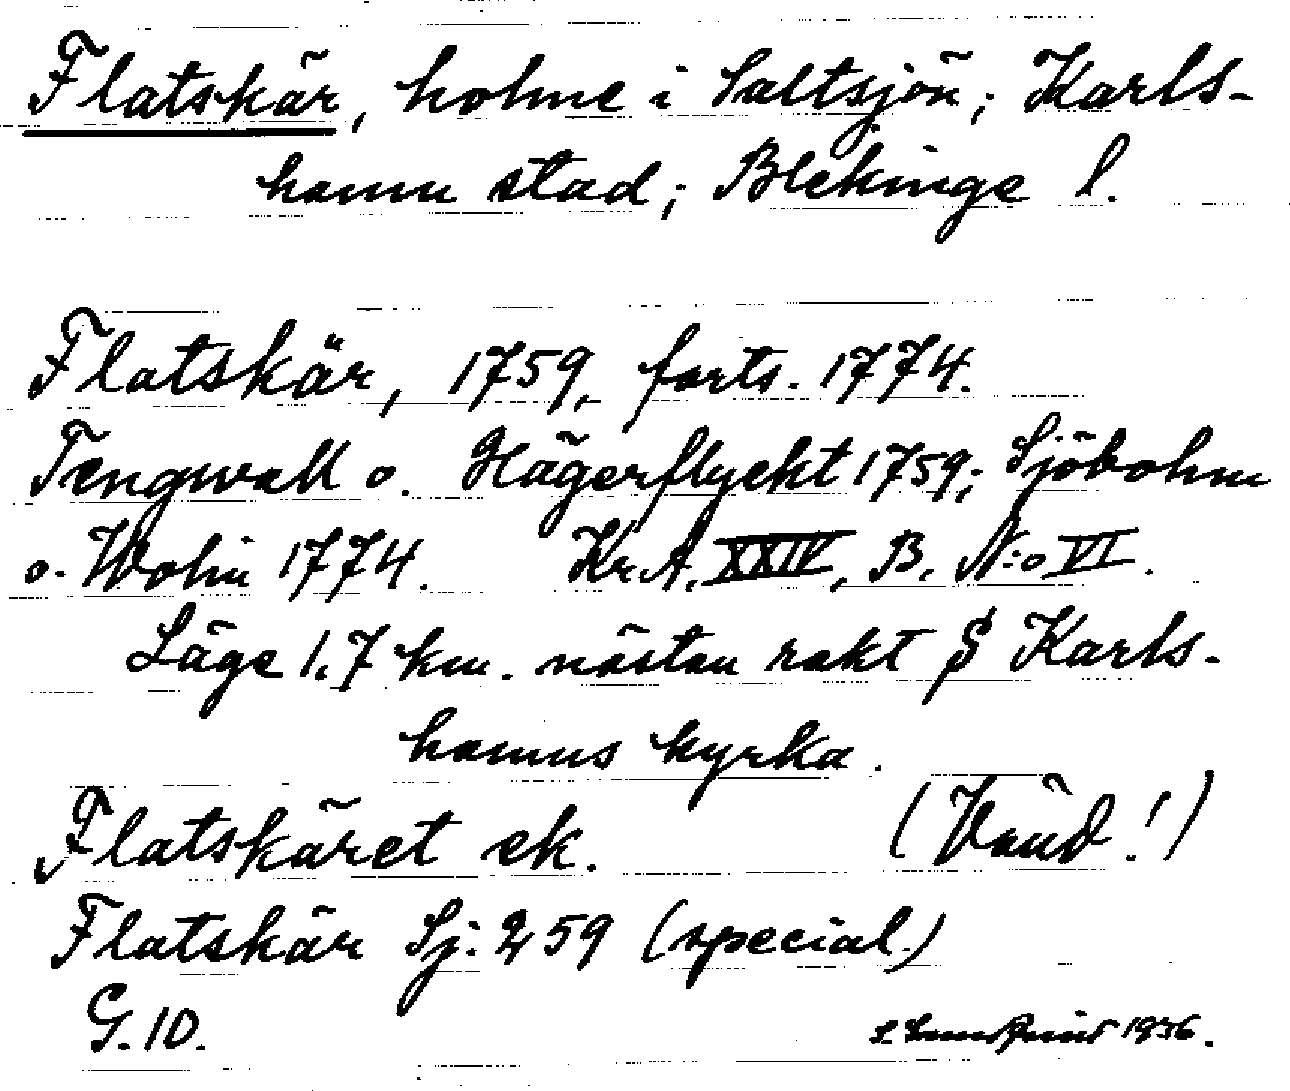 Flatskär, holme i Saltsjön; Karls-
hamn stad; Blekinge l.
Flatskär, 1759, forts. 1774.
Tengwall o. Hägerflyckt 1759; Sjöbohm
o. Wolin 1774. Kr.A. XXIV, B. N:o VI.
Läge 1,7 km. nästan rakt S Karls-
hamns kyrka.
Flatskäret ek. (Vänd!)
Flatskär Sj. 259 (special.)
G. 10. 1936.